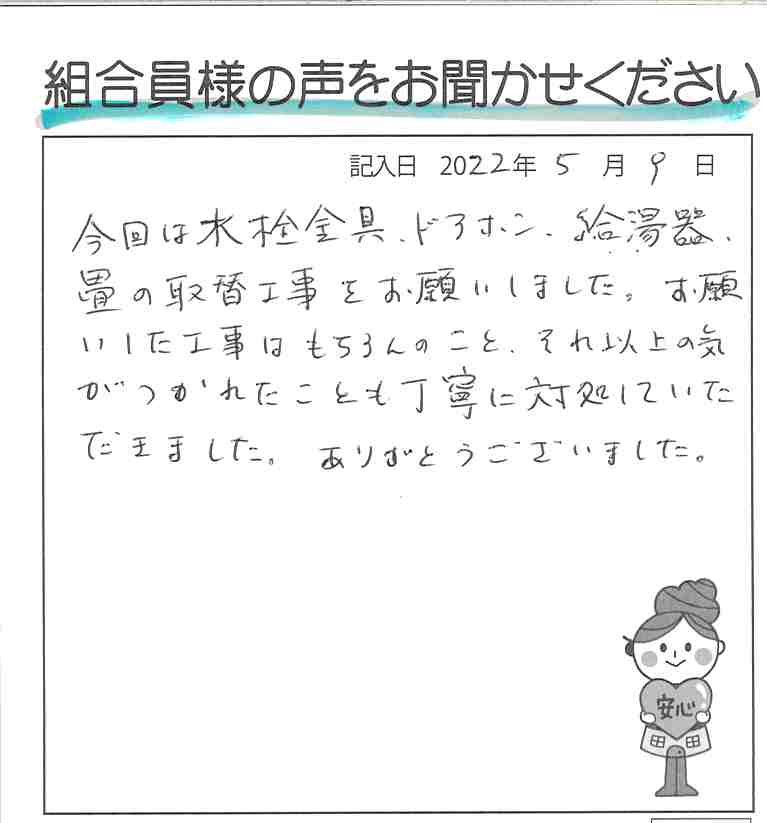 組合員様の声をお聞かせください
記入日 2022年 5 月 9 日
今回は水栓金具、ドアホン、給湯器、
畳の取替工事をお願いしました。お願
いした工事はもちろんのこと、それ以上の気
がつかれたことも丁寧に対処していた
だきました。ありがとうございました。
安心